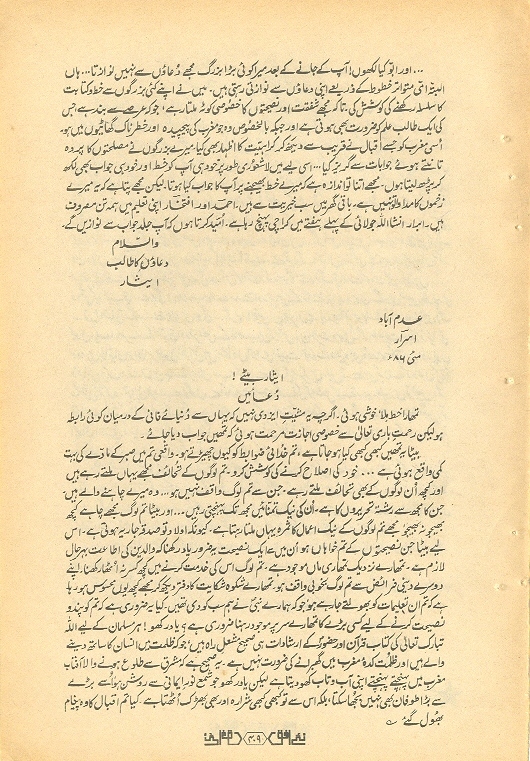 ... اور ابّو کیا لکھوں! آپ کے جانے کے بعد میرا کوئی بڑا بزرگ مجھے دُعاؤں سے نہیں نوازتا... ہاں
البتہ امّی متواتر خطوط کے ذریعے اپنی دعاؤں سے نوازتی رہتی ہیں. میں نے اپنے کئی بزرگوں سے خط و کتابت
کا سلسلہ رکھنے کی کوشش کی، تاکہ مجھے شفقت اور نصیحتوں کا خصوصی کوٹہ ملتا رہے، جو کہ عرصے سے بند ہے، جس
کی ایک طالب علم کو ضرورت بھی ہوتی ہے اور جبکہ بالخصوص وہ جو مغرب کی پیچیدہ اور خطرناک گھاٹیوں میں ہو.
اُسی مغرب کو جسے اقبال نے قریب سے دیکھ کر کراہیت کا اظہار بھی کیا، میرے بزرگوں نے مصلحتوں کا پردہ
تانتے ہوئے جوابات سے گریز کیا... اسی لیے میں لاشعوری طور پر خود ہی آپ کو خط اور خود ہی جواب بھی لکھ
کر پڑھ لیتا ہوں. مجھے اتنا تو اندازہ ہے کہ میرے خط بھیجنے پر آپ کا جواب کیا ہوتا، لیکن مجھے پتا ہے کہ یہ میرے
زخموں کا مداوا تو نہیں ہے. باقی گھر میں سب خیریت سے ہیں. احمد اور افتخار اپنی تعلیم میں ہمہ تن مصروف
ہیں. اسرار انشا اللہ جولائی کے پہلے ہفتے میں کراچی پہنچ رہا ہے. اُمید کرتا ہوں کہ آپ جلد جواب سے نوازیں گے.
والسّلام
دعاؤں کا طالب
ایثار
عدم آباد
اسرار
مئی ۸۶ء
ایثار بیٹے!
دُعائیں
تمہارا خط ملا، خوشی ہوئی. اگرچہ یہ مشیتِ ایزدی نہیں کہ یہاں سے دُنیائے فانی کے درمیان کوئی رابطہ
ہو لیکن رحمتِ باری تعالیٰ سے خصوصی اجازت مرحمت ہوئی کہ تمھیں جواب دیا جائے.
بیٹا یہ تمھیں کبھی کبھی کیا ہو جاتا ہے، تم خدائی ضوابط کو کیوں چھیڑتے ہو. واقعی تم میں صبر کے مادّے کی بہت
کمی واقع ہوئی ہے... خود کی اصلاح کرنے کی کوشش کرو. تم لوگوں کے تحائف مجھے یہاں ملتے رہے ہیں
اور کچھ اُن لوگوں کے بھی تحائف ملتے رہے، جن سے تم لوگ واقف نہیں ہو... وہ میرے چاہنے والے ہیں
جن کا مجھ سے رشتہ تحریروں کا ہے، اُن کی نیک تمنّائیں مجھ تک پہنچتی رہیں... اور بیٹا تم لوگ مجھے چاہے کچھ
بھیجو نہ بھیجو، مجھے تم لوگوں کے نیک اعمال کا ثمرہ یہاں ملتا رہتا ہے، کیونکہ اولاد تو صدقہ جاریہ ہوتی ہے. اس
لیے بیٹا جن نصیحتوں کے تم خواہاں ہو اُن میں سے ایک نصیحت یہ ضرور یاد رکھنا کہ والدین کی اطاعت بہرحال
لازم ہے. تمھارے نزدیک تمھاری ماں موجود ہے، تم لوگ اس کی خدمت کرنے میں کوئی کسر نہ اُٹھا رکھنا، اپنے
دوسرے دینی فرائض سے تم لوگ بخوبی واقف ہو. تمھارے شکوہ شکایت کا دفتر دیکھ کر مجھے کچھ یوں محسوس ہو رہا
ہے کہ تم ان تعلیمات کو بھولتے جا رہے ہو جو کہ ہمارے نبیؐ نے ہم سب کو دی تھیں. کیا یہ ضروری ہے کہ تم کو پند و
نصیحت کرنے کے لیے کسی بڑے کا تمھارے سر پر موجود رہنا ضروری ہے؟ یاد رکھو! ہر مسلمان کے لیے اللہ
تبارک تعالیٰ کی کتاب قرآن اور حضورؐ کے ارشادات ہی صحیح مشعلِ راہ ہیں، جو کہ ظلمت میں انسان کا ساتھ دینے
والے ہیں اور ظلمت کدۂ مغرب میں گھبرانے کی ضرورت نہیں ہے. یہ صحیح ہے کہ مشرق سے طلوع ہونے والا آفتاب
مغرب میں پہنچتے پہنچتے اپنی آب و تاب کھو دیتا ہے لیکن یاد رکھو جو شمع نورِ ایمانی سے روشن ہو اُسے بڑے
سے بڑا طوفان بھی نہیں بجھا سکتا، بلکہ اس سے تو کبھی کبھی شرارہ اور بھی بھڑک اُٹھتا ہے. کیا تم اقبال کا وہ پیغام
بھول گئے ؎
۳۰۹